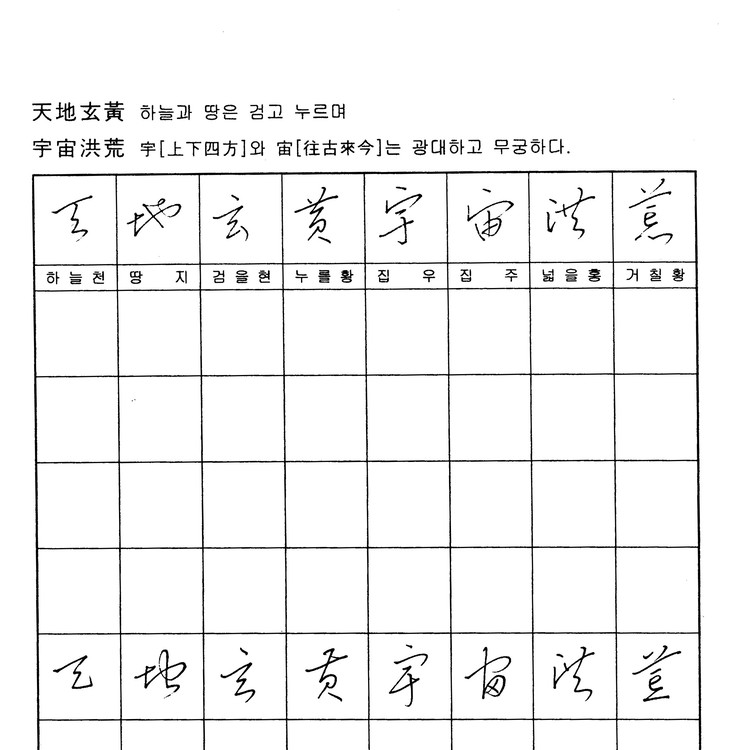 天地玄黃 하늘과 땅은 검고 누르며
宇宙洪荒 宇[上下四方]와 宙[往古來今]는 광대하고 무궁하다.
天 地 玄 黃 宇 宙 洪 荒
하늘천 땅지 검을현 누를황 집우 집주 넓을홍 거칠황
天 地 玄 黃 宇 宙 洪 荒